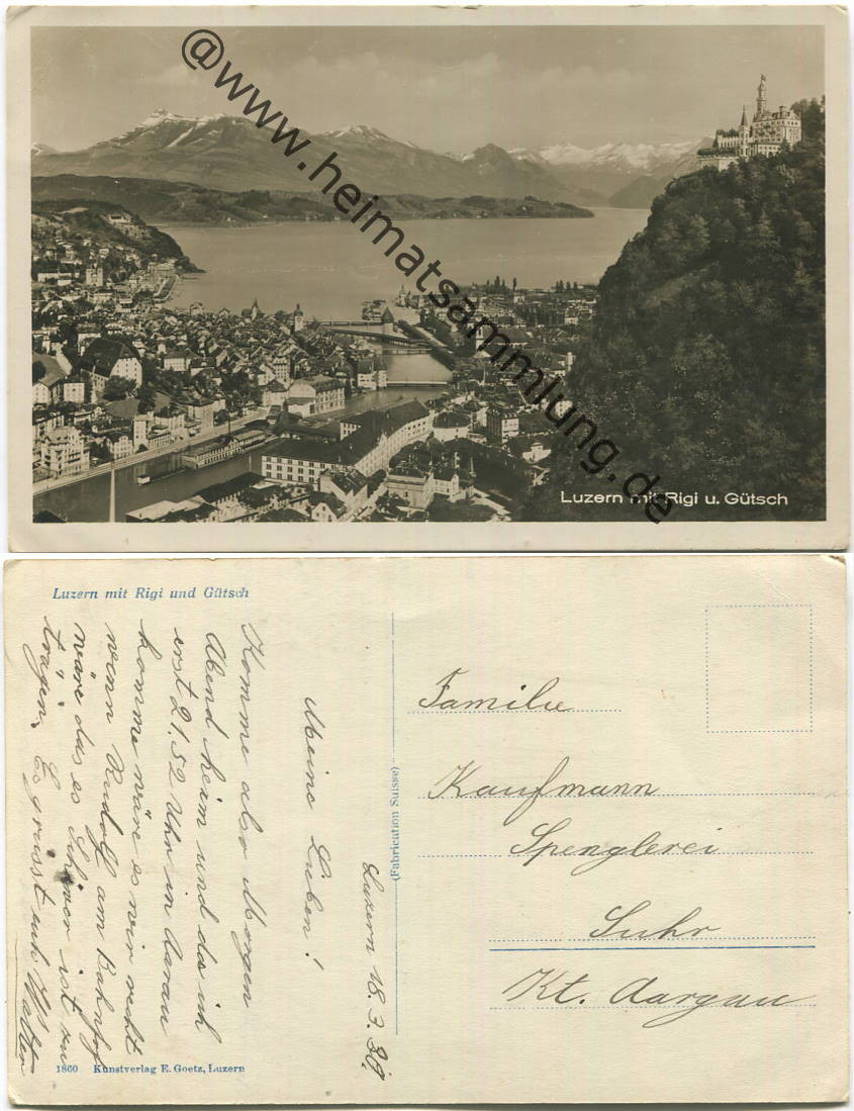 @www.heimatsammlung.de
Luzern mit Rigi u. Gütsch
Luzern mit Rigi und Gütsch
Luzern 18.3.39.
Meine Lieben!
Komme also Morgen
Abend heim und da ich
erst 21.52 Uhr in Aarau
komme wäre es mir recht
wenn Rudolf am Bahnhof
wäre da es Schwer ist zu
tragen. Es grüsst euch Walter
1860 Kunstverlag E. Goetz, Luzern
(Fabrication Suisse)
Familie
Kaufmann
Spenglerei
Suhr
Kt. Aargau